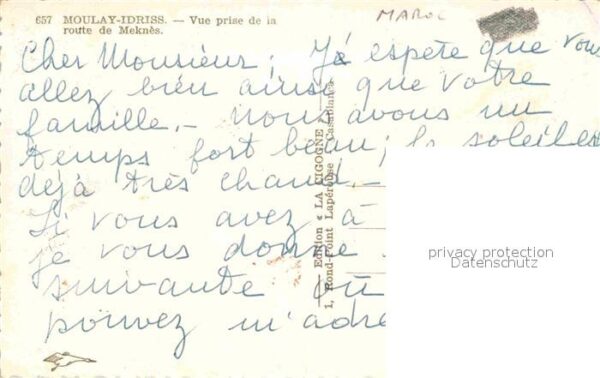 657 MOULAY-IDRISS. — Vue prise de la
route de Meknès.
MAROC
Cher Monsieur; J'espère que vous
allez bien ainsi que votre
famille. — Nous avons un
temps fort beau; le soleil es
déjà très chaud. —
Si vous avez à
je vous donne
suivante où
pouvez m'adre
— Edition « LA CIGOGNE » —
1, Rond-Point Lapérouse - Casablanca
privacy protection
Datenschutz